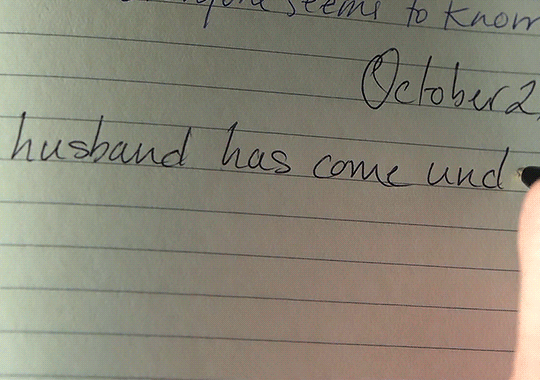 seems to know
October 2
husband has come und